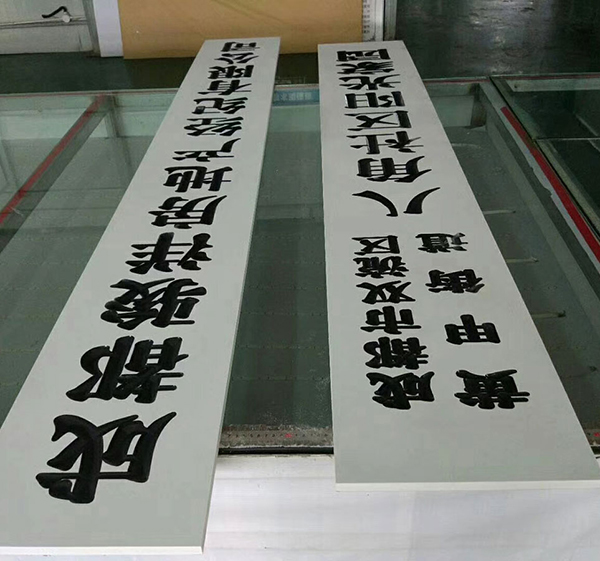 成都骏祥房地产经纪有限公司
成都市双流区
黄甲街道
八角社区阳光家園